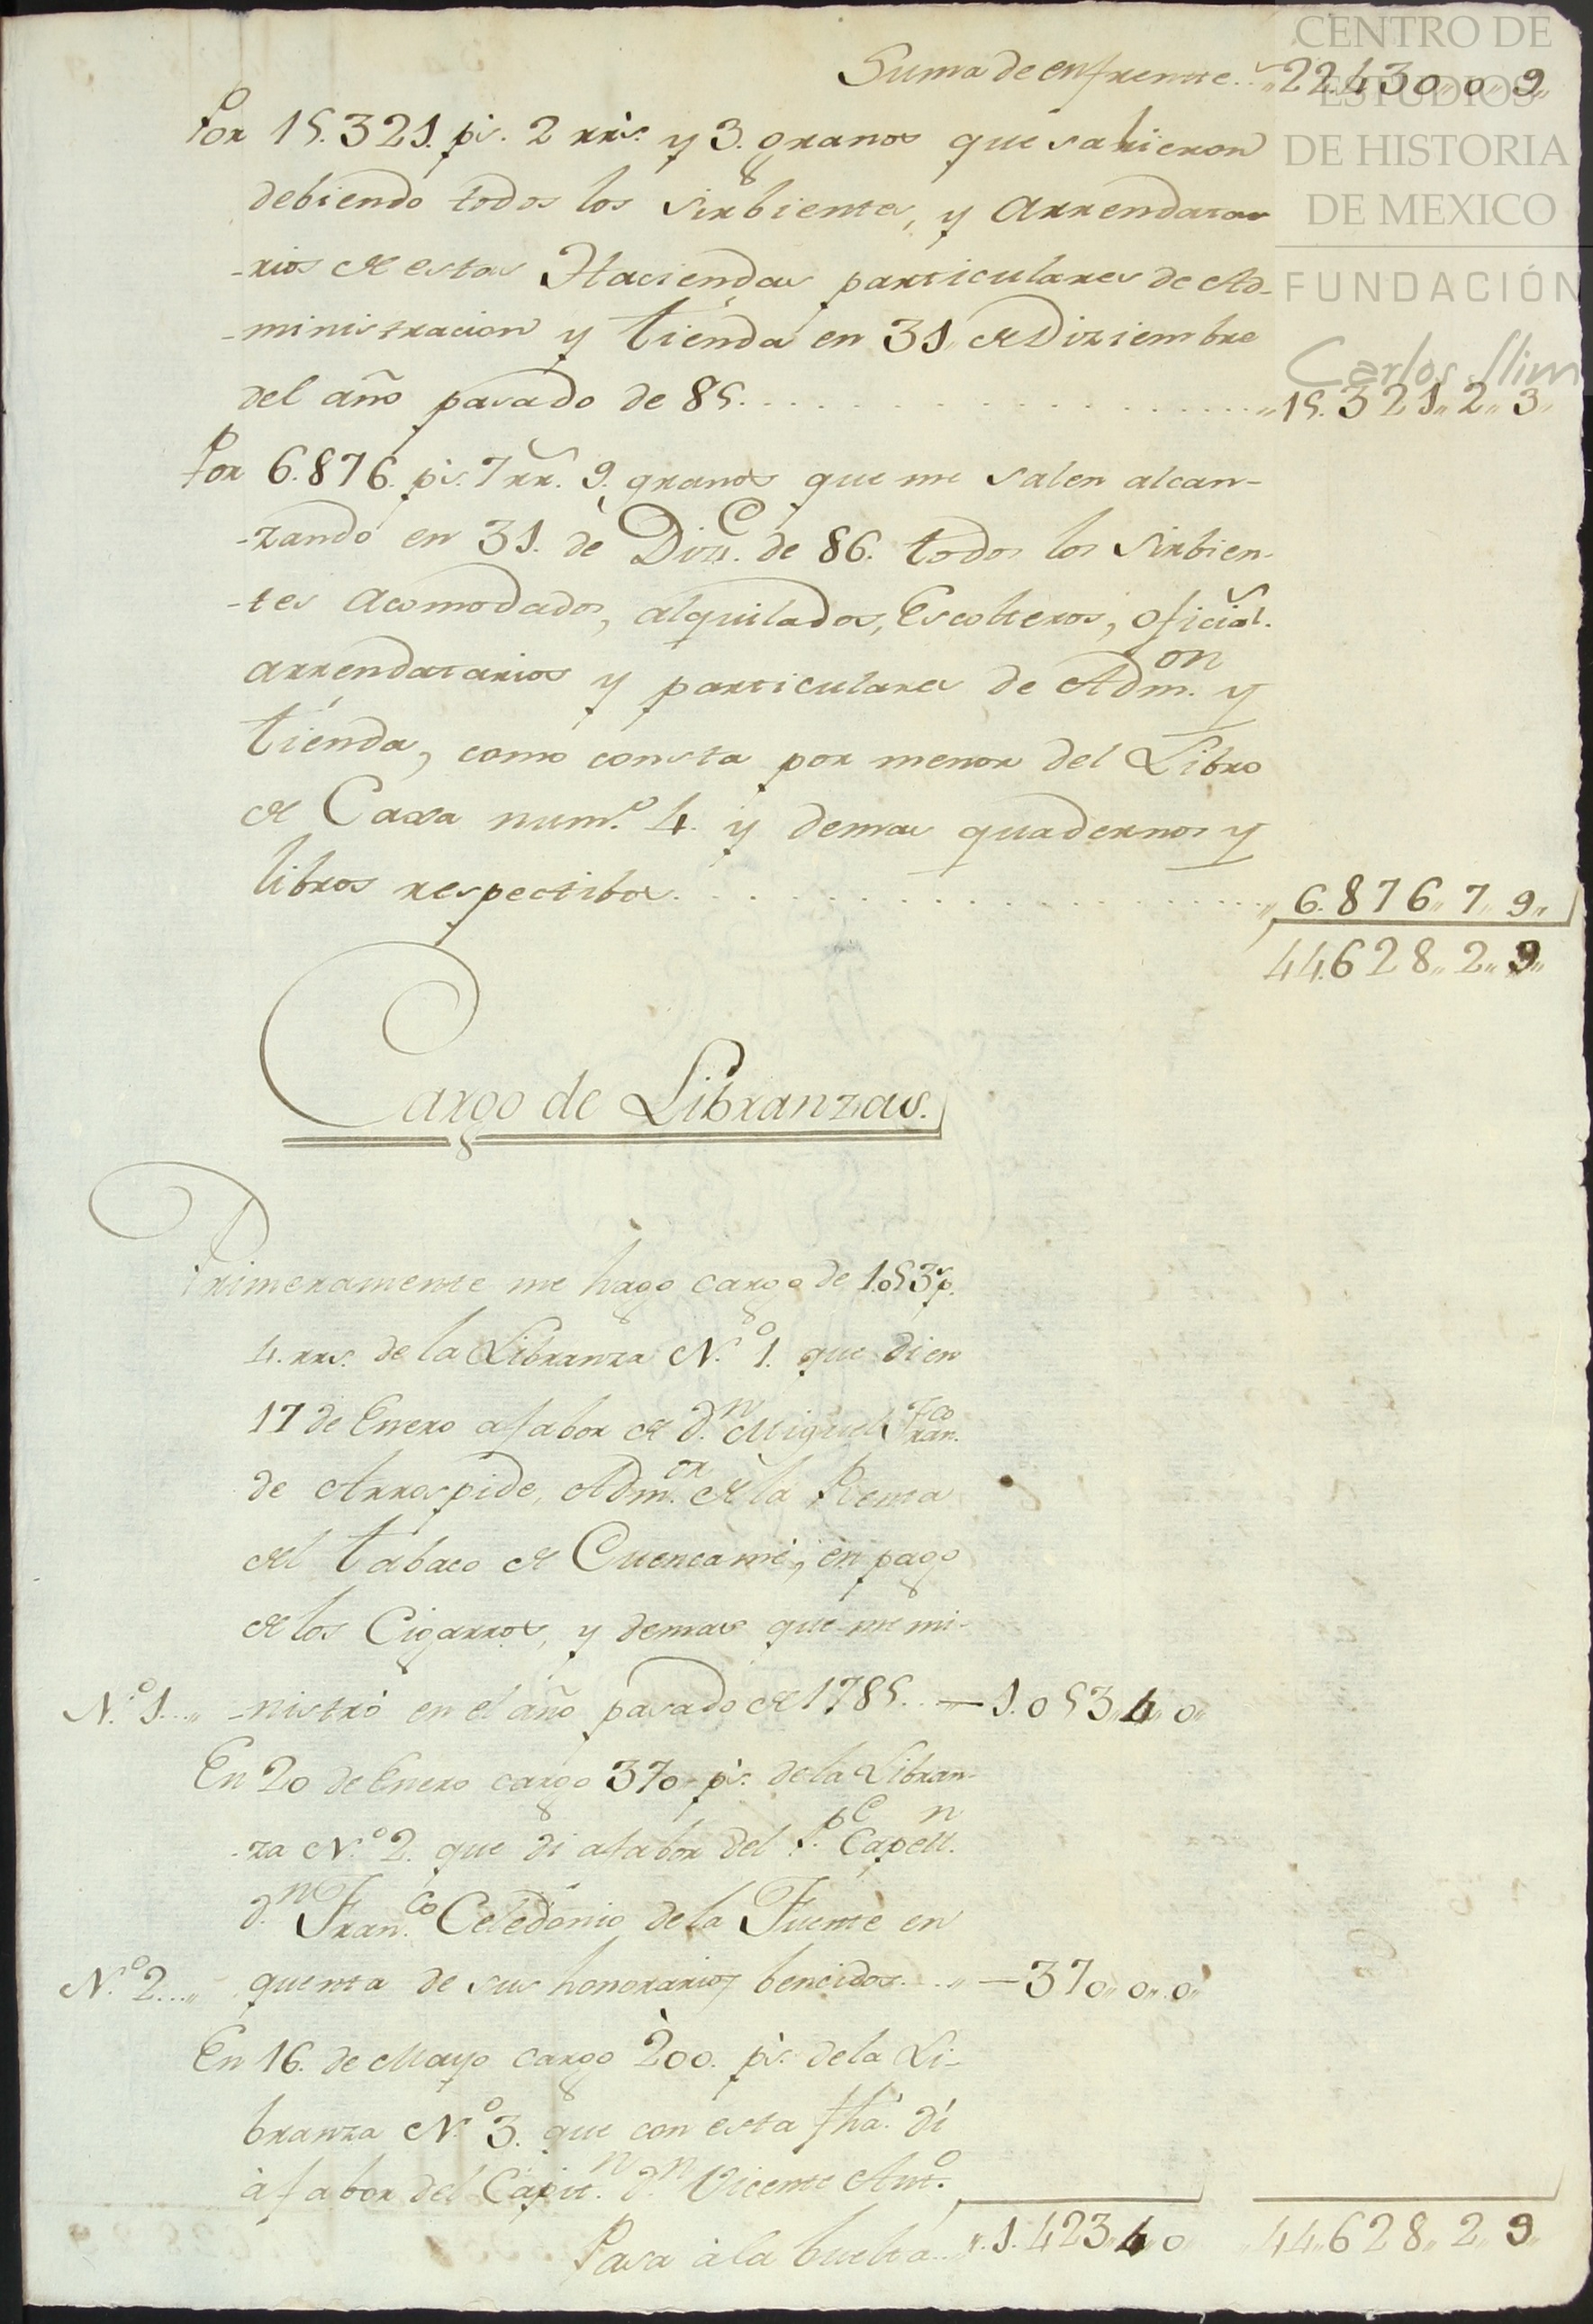 CENTRO DE
ESTUDIOS
DE HISTORIA
DE MEXICO
FUNDACIÓN
Carlos Slim
Suma de enfrente.. ,,22.430,,0,,9,,
Por 15.321. ps. 2 rrs. y 3. granos que salieron
debiendo todos los sirbientes, y Arrendata-
-rios de estas Haciendas particulares de Ad-
-ministracion y tienda en 31. de Diziembre
del año pasado de 85. . . . . . . . . . . . ,,15.321,,2,,3,,
Por 6.876. ps. 7 rr. 9. granos que me salen alcan-
-zando en 31. de Dize. de 86. todos los Sirbien-
-tes acomodados, alquilados, Escolteros, oficial.
arrendatarios y particulares de Admon. y
tienda, como consta por menor del Libro
de Caxa numo. 4. y demas quadernos y
libros respectibos. . . . . . . . . . . . . ,,6.876,,7,,9,,
44.628,,2,,9,,
Cargo de Libranzas.
Primeramente me hago cargo de 1.053 ps.
4. rrs. de la Libranza N.o 1. que di en
17 de Enero a fabor de Dn. Miguel Franco.
de Arrospide, Admor. de la Renta
del tabaco de Cuencamé, en pago
de los Cigarros, y demas que me mi-
N.o 1...,, -nistró en el año pasado de 1785. — 1.053,,4,,0,,
En 20 de Enero cargo 370 ps. de la Libran-
-za N.o 2. que di a fabor del Pe. Capelln.
Dn. Franco. Celedonio de la Fuente en
N.o 2...,, quenta de sus honorarios bencidos...,, — 370,,0,,0,,
En 16. de Mayo cargo 200. ps. de la Li-
branza N.o 3. que con esta fha. dí
à fabor del Capitn. Dn. Vicente Anto.
Pasa à la buelta...,, 1.423,,4,,0,, 44,,628,,2,,9,,